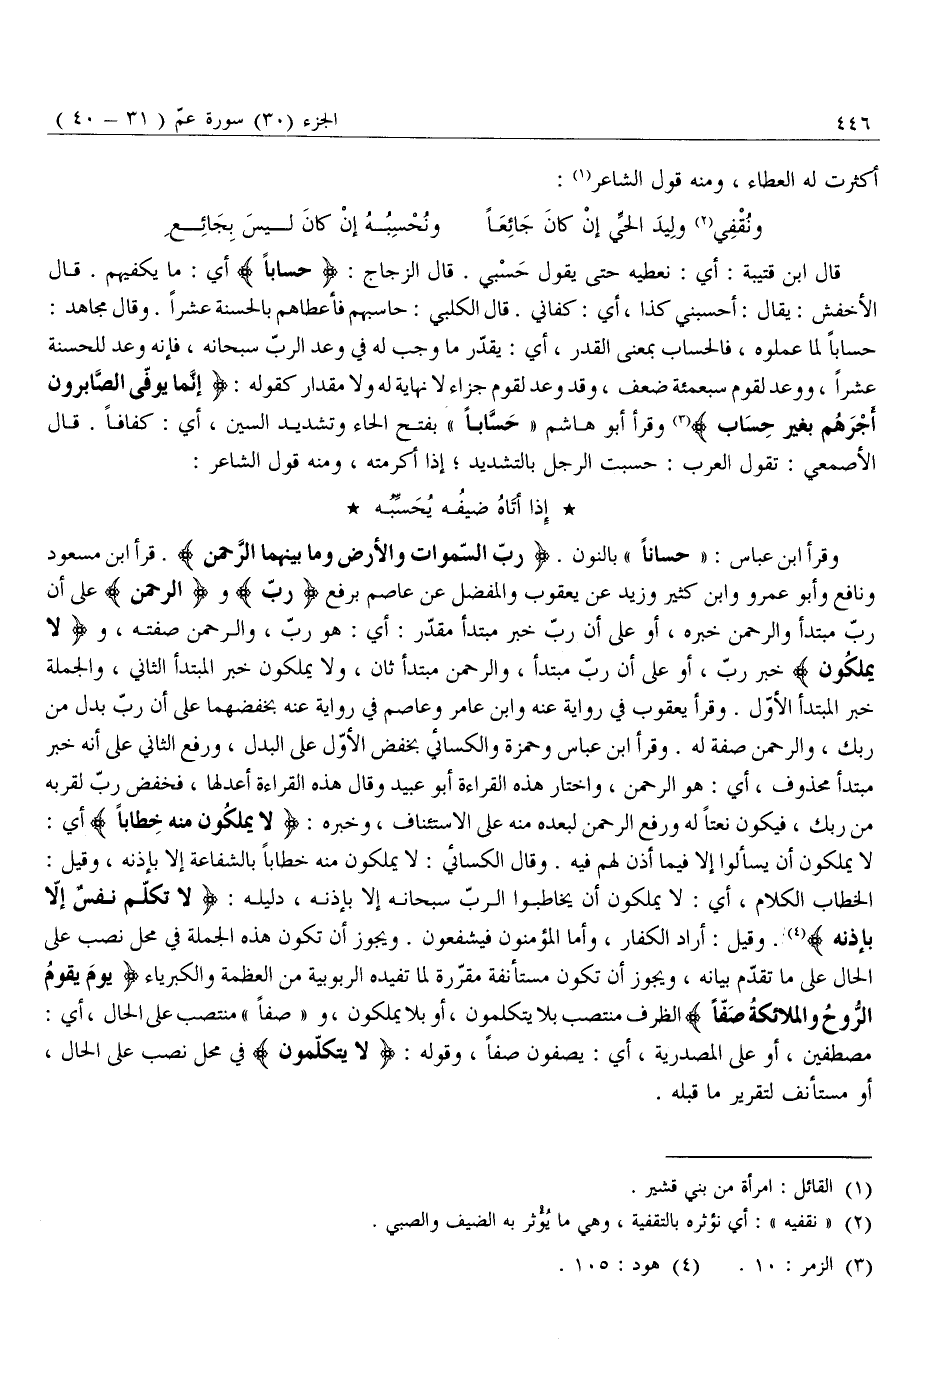 ٤٤٦ الجزء (٣٠) سورة عمّ ( ٣١ - ٤٠ )
أكثرت له العطاء ، ومنه قول الشاعر(١) :
ونُقْفِي(٢) ولِيدَ الحَيِّ إنْ كانَ جَائِعَاً ونُحْسِبُــهُ إنْ كانَ لــيسَ بِجَائِــعِ
قال ابن قتيبة : أي : نعطيه حتى يقول حَسْبي . قال الزجاج : ﴿ حساباً ﴾ أي : ما يكفيهم . قــال
الأخفش : يقال : أحسبني كذا ، أي : كفاني . قال الكلبي : حاسبهم فأعطاهم بالحسنة عشراً . وقال مجاهد :
حساباً لما عملوه ، فالحساب بمعنى القدر ، أي : يقدّر ما وجب له في وعد الربّ سبحانه ، فإنه وعد للحسنة
عشراً ، ووعد لقوم سبعمئة ضعف ، وقد وعد لقوم جزاء لا نهاية له ولا مقدار كقوله : ﴿ إنَّما يوفّى الصَّابرون
أجْرَهُم بغير حِسَاب ﴾(٣) وقرأ أبو هــاشم « حَسَّابــاً » بفتــح الحاء وتشديــد السين ، أي : كفافــاً . قــال
الأصمعي : تقول العرب : حسبت الرجل بالتشديد ؛ إذا أكرمته ، ومنه قول الشاعر :
★ إِذا أتَاهُ ضيفُـه يُحَسِّبُـه ★
وقرأ ابن عباس : « حساناً » بالنون . ﴿ ربّ السّموات والأرض وما بينهما الرَّحمن ﴾ . قرأ ابن مسعود
ونافع وأبو عمرو وابن كثير وزيد عن يعقوب والمفضل عن عاصم برفع ﴿ ربّ ﴾ و ﴿ الرحمن ﴾ على أن
ربّ مبتدأ والرحمن خبره ، أو على أن ربّ خبر مبتدأ مقدّر : أي : هو ربّ ، والـرحمن صفتـه ، و ﴿ لا
يملكُون ﴾ خبر ربّ ، أو على أن ربّ مبتدأ ، والرحمن مبتدأ ثان ، ولا يملكون خبر المبتدأ الثاني ، والجملة
خبر المبتدأ الأوّل . وقرأ يعقوب في رواية عنه وابن عامر وعاصم في رواية عنه بخفضهما على أن ربّ بدل من
ربك ، والرحمن صفة له . وقرأ ابن عباس وحمزة والكسائي بخفض الأوّل على البدل ، ورفع الثاني على أنه خبر
مبتدأ محذوف ، أي : هو الرحمن ، واختار هذه القراءة أبو عبيد وقال هذه القراءة أعدلها ، فخفض ربّ لقربه
من ربك ، فيكون نعتاً له ورفع الرحمن لبعده منه على الاستئناف ، وخبره : ﴿ لا يملكُون منه خِطاباً ﴾ أي :
لا يملكون أن يسألوا إلا فيما أذن لهم فيه . وقال الكسائي : لا يملكون منه خطاباً بالشفاعة إلا بإذنه ، وقيل :
الخطاب الكلام ، أي : لا يملكون أن يخاطبـوا الـربّ سبحانـه إلا بإذنـه ، دليلـه : ﴿ لا تكلّـم نـفسٌ إلّا
بإذنه ﴾(٤) . وقيل : أراد الكفار ، وأما المؤمنون فيشفعون . ويجوز أن تكون هذه الجملة في محل نصب على
الحال على ما تقدّم بيانه ، ويجوز أن تكون مستأنفة مقرّرة لما تفيده الربوبية من العظمة والكبرياء ﴿ يومَ يقومُ
الرُّوحُ والملائكةُ صَفّاً ﴾ الظرف منتصب بلا يتكلمون ، أو بلا يملكون ، و « صفاً » منتصب على الحال ، أي :
مصطفين ، أو على المصدرية ، أي : يصفون صفاً ، وقوله : ﴿ لا يتكلّمون ﴾ في محل نصب على الحال ،
أو مستأنف لتقرير ما قبله .
(١) القائل : امرأة من بني قشير .
(٢) « نقفيه » : أي نؤثره بالتقفية ، وهي ما يُؤْثر به الضيف والصبي .
(٣) الزمر : ١٠ . (٤) هود : ١٠٥ .